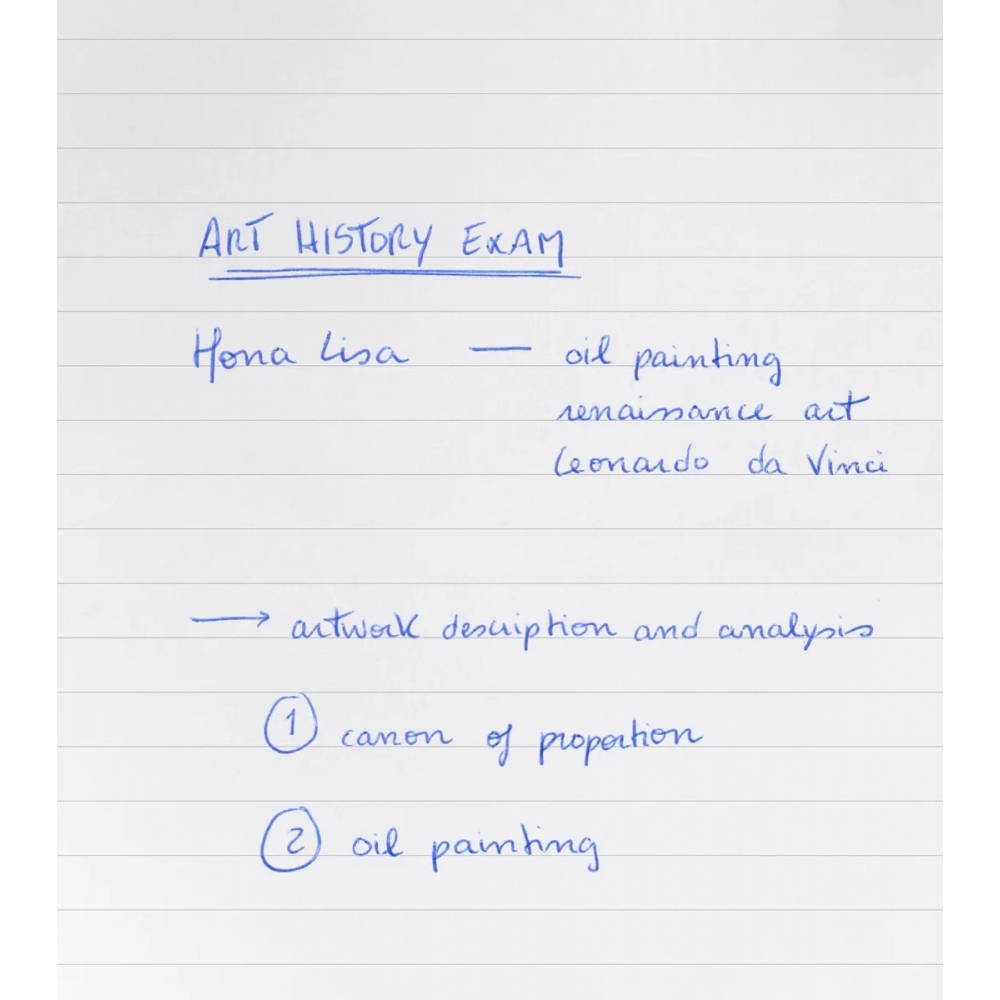 ART HISTORY EXAM
Mona Lisa — oil painting
renaissance art
Leonardo da Vinci
→ artwork description and analysis
① canon of proportion
② oil painting